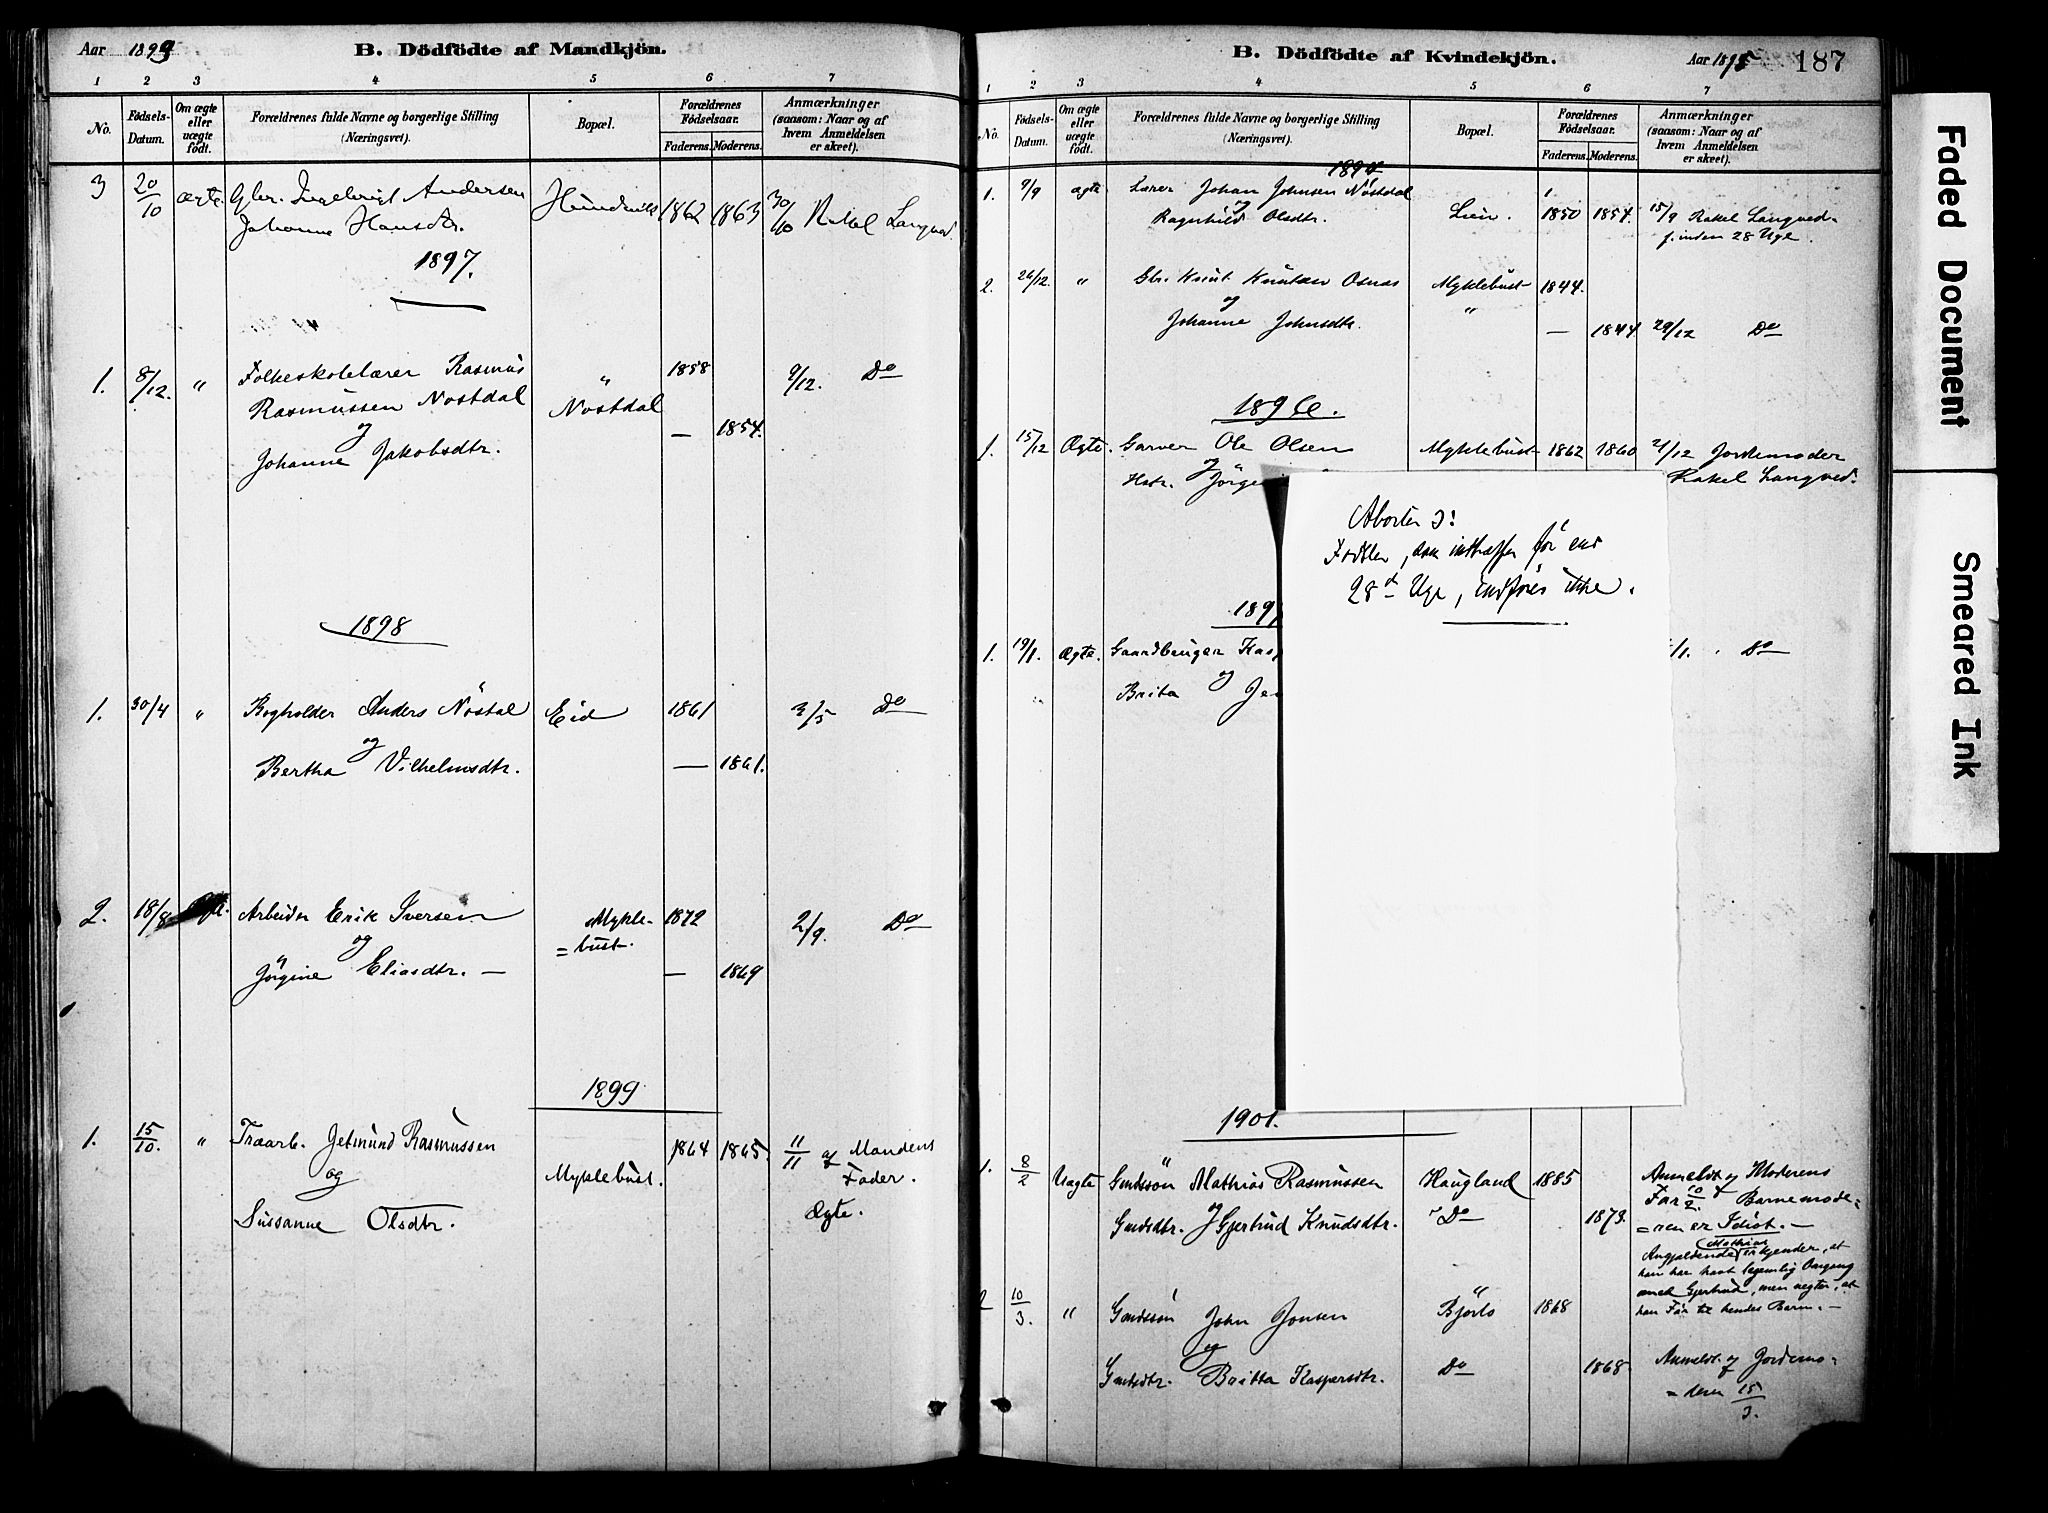 Aar 1893
B. Dödfödte af Mandkjön.
1 2 3 4 5 6 7
No.
Födsels-Datum.
Om ægte eller uægte födt.
Forældrenes fulde Navne og borgerlige Stilling (Næringsvei).
Bopæl.
Forældrenes Födselsaar.
Faderens. Moderens.
Anmærkninger (saasom: Naar og af hvem Anmeldelsen er skeet).
3 20/10 ægte. Gbr. Ingebrigt Andersen Hundevik 1862 1863 30/10 Rakel Langved.
Johanne Hansdtr.
1897.
1. 8/12. " Folkeskolelærer Rasmus " 1858 9/12. Do
Rasmussen Nøstdal Nøstdal
og — 1854.
Johanne Jakobsdtr.
1898
1. 30/4 " Anders Nöstdal Eid 1861 3/5 Do
og
Bertha Vilhelmsdtr. — 1861.
2. 18/8 Ægte. Arbeider Erik Iversen Mykle- 1872 2/9. Do
og =bust.
Jörgine Eliasdtr. — — 1869
1899
1. 15/10. " Træarb. Jetmund Rasmussen 1864 1865. 11/11 af Mandens
og Myklebust. Fader.
Sussanne Olsdtr. Ægte.
B. Dödfödte af Kvindekjön.
Aar 1895 187
1 2 3 4 5 6 7
No.
Födsels-Datum.
Om ægte eller uægte födt.
Forældrenes fulde Navne og borgerlige Stilling (Næringsvei).
Bopæl.
Forældrenes Födselsaar.
Faderens. Moderens.
Anmærkninger (saasom: Naar og af hvem Anmeldelsen er skeet).
1. 9/9 ægte Lærer Johan Johnsen Nöstdal
og Lien. 1850 1854. 15/9 Rakel Langved
Ragnhild Olsdtr. f. inden 28 Uge.
2. 26/12. " Gbr. Knut Knutsen Osnes Myklebust 1844.
og "
Johanne Johnsdtr. — 1844 29/12 Do
1896.
1. 15/12 Ægte. Garver Ole Olsen Myklebust 1862 1860 21/12 Jordemoder
og
Hstr. Jörgi Rakel Langved.
Aborter ɔ:
Fødsler, som indtræffer før end
28de Uge, indføres ikke.
189
1. 19/1. Ægte. Gaardbruger Kasp /1. Do
og
Brita Je
1901.
1. 8/2 Uægte Gmdssön Mathias Rasmussen Haugland 1885 Anmeldt af Moderens
Far 10/2. Barnemode-
Gmdsdtr. og Gjertrud Knudsdtr. Do 1873. =ren er Idiot.—
Mathias
Angjældende erkjender, at
han har havt legemlig Omgang
med Gjertrud, men negter, at
han Far til hendes Barn.—
2 10/3. " Gmdssön John Jonsen Bjorlo 1868
og
Gmdsdtr. Britta Kaspersdtr. Do 1868. Anmeldt af Jordemo-
=deren 15/3.
Faded Document
Smeared Ink